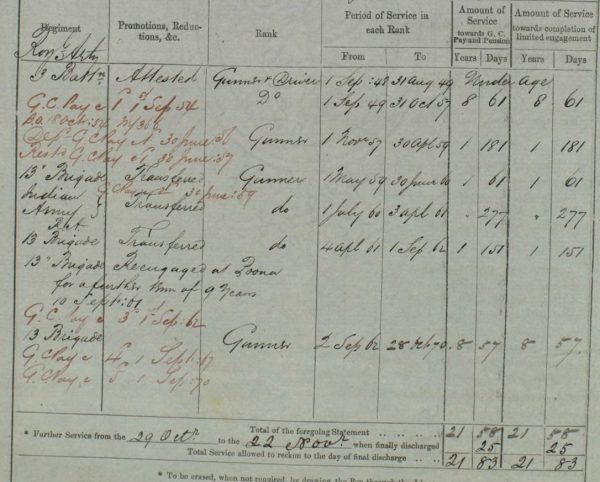 Regiment Promotions, Reductions, &c. Rank Period of Service in each Rank Amount of Service towards G. C. Pay and Pension Amount of Service towards completion of limited engagement
From To Years Days Years Days
Attested Gunner & Driver 1 Sep: 48 31 Aug 49 Under Age
G.C. Pay @ 1d 1 Sep 54 Do 1 Sep 49 31 Oct 57 8 61 8 61
30 June: 56 Gunner 1 Novr 57 30 Apl 59 1 181 1 181
G.C. Pay 30 June: 57
13th Brigade Transferred Gunner 1 May 59 30 June 60 1 61 1 61
G.C. Pay 30 June: 59
Indian Army } Transferred do 1 July 60 3 apl 61 " 277 " 277
13 Brigade Transferred do 4 apl 61 1 Sep 62 1 151 1 151
13th Brigade Reengaged at Poona
for a further term of 9 Years
10 Sept: 61
G.C. Pay @ 3d 1 Sep: 62
13 Brigade Gunner 2 Sep 62 28 Oct 70 8 57 8 57
G.C. Pay @ 4 1 Sept: 67
G.C. Pay @ 5 1 Sep: 70
Total of the foregoing Statement 21 58 21 58
* Further Service from the 29 Octr to the 22 Novr when finally discharged 25 25
Total Service allowed to reckon to the day of final discharge 21 83 21 83
* To be erased, when not required, by drawing the Pen through